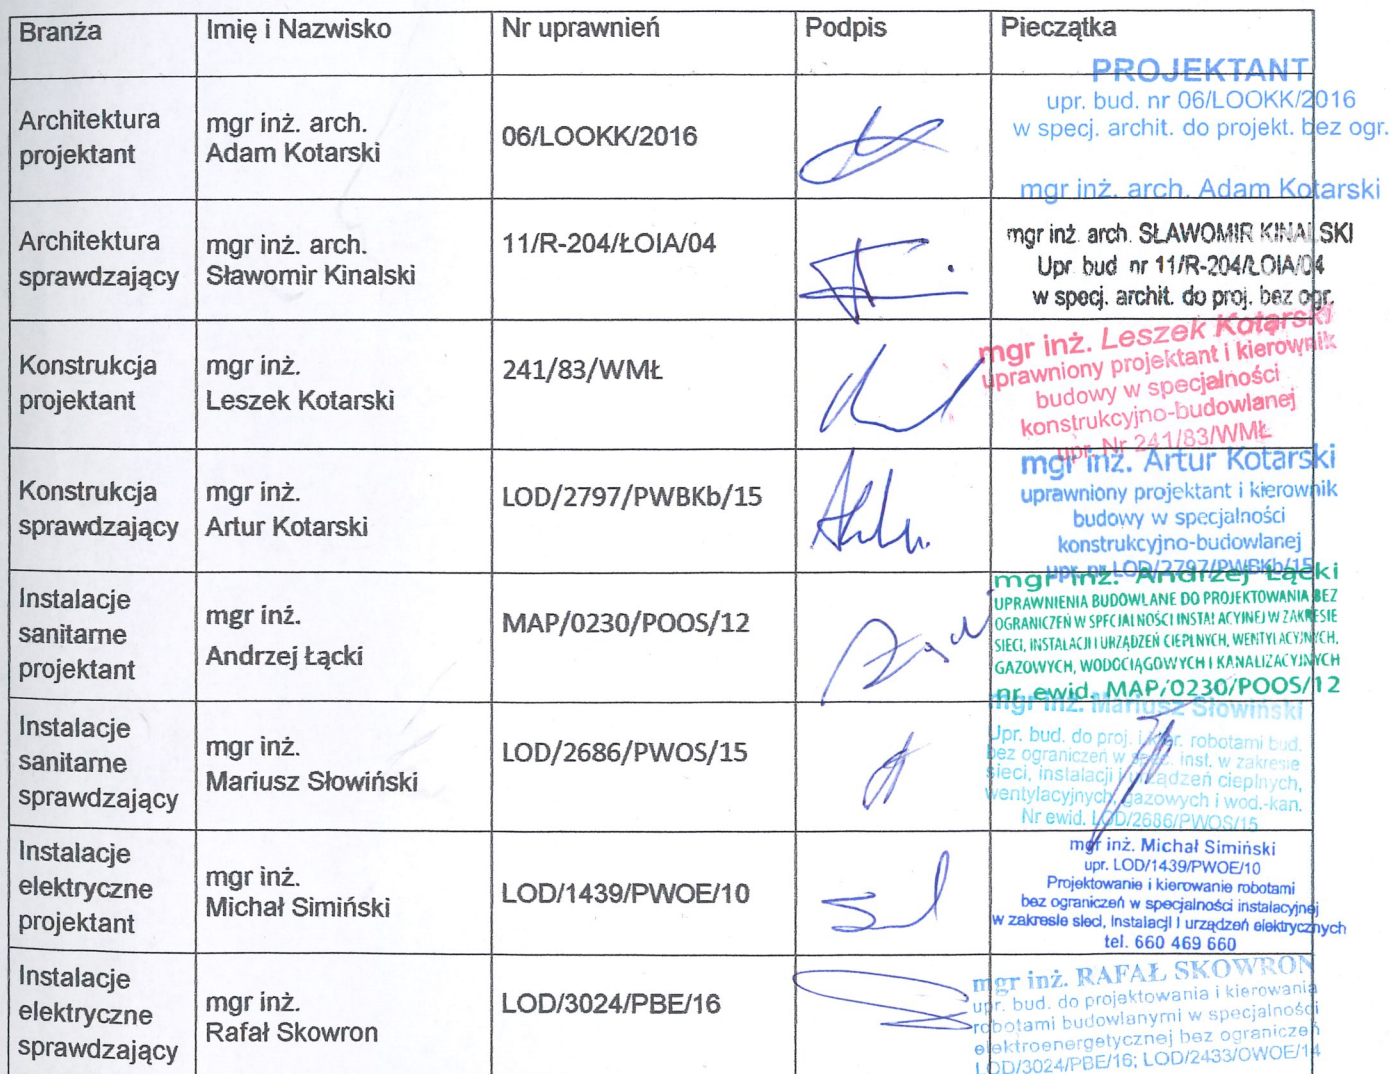 Branża Imię i Nazwisko Nr uprawnień Podpis Pieczątka
Architektura
projektant
mgr inż. arch.
Adam Kotarski
06/LOOKK/2016
PROJEKTANT
upr. bud. nr 06/LOOKK/2016
w specj. archit. do projekt. bez ogr.
mgr inż. arch. Adam Kotarski
Architektura
sprawdzający
mgr inż. arch.
Sławomir Kinalski
11/R-204/ŁOIA/04
mgr inż. arch. SŁAWOMIR KINALSKI
Upr. bud nr 11/R-204/ŁOIA/04
w specj. archit. do proj. bez ogr.
Konstrukcja
projektant
mgr inż.
Leszek Kotarski
241/83/WMŁ
mgr inż. Leszek Kotarski
uprawniony projektant i kierownik
budowy w specjalności
konstrukcyjno-budowlanej
upr. Nr 241/83/WMŁ
Konstrukcja
sprawdzający
mgr inż.
Artur Kotarski
LOD/2797/PWBKb/15
mgr inż. Artur Kotarski
uprawniony projektant i kierownik
budowy w specjalności
konstrukcyjno-budowlanej
upr. nr LOD/2797/PWBKb/15
Instalacje
sanitarne
projektant
mgr inż.
Andrzej Łącki
MAP/0230/POOS/12
mgr inż. Andrzej Łącki
UPRAWNIENIA BUDOWLANE DO PROJEKTOWANIA BEZ
OGRANICZEŃ W SPECJALNOŚCI INSTALACYJNEJ W ZAKRESIE
SIECI, INSTALACJI I URZĄDZEŃ CIEPLNYCH, WENTYLACYJNYCH,
GAZOWYCH, WODOCIĄGOWYCH I KANALIZACYJNYCH
nr. ewid. MAP/0230/POOS/12
Instalacje
sanitarne
sprawdzający
mgr inż.
Mariusz Słowiński
LOD/2686/PWOS/15
mgr inż. Mariusz Słowiński
Upr. bud. do proj. i kier. robotami bud.
bez ograniczeń w spec. inst. w zakresie
sieci, instalacji i urządzeń cieplnych,
wentylacyjnych, gazowych i wod.-kan.
Nr ewid. LOD/2686/PWOS/15
Instalacje
elektryczne
projektant
mgr inż.
Michał Simiński
LOD/1439/PWOE/10
mgr inż. Michał Simiński
upr. LOD/1439/PWOE/10
Projektowanie i kierowanie robotami
bez ograniczeń w specjalności instalacyjnej
w zakresie sieci, instalacji i urządzeń elektrycznych
tel. 660 469 660
Instalacje
elektryczne
sprawdzający
mgr inż.
Rafał Skowron
LOD/3024/PBE/16
mgr inż. RAFAŁ SKOWRON
upr. bud. do projektowania i kierowania
robotami budowlanymi w specjalności
elektroenergetycznej bez ograniczeń
LOD/3024/PBE/16; LOD/2433/OWOE/14